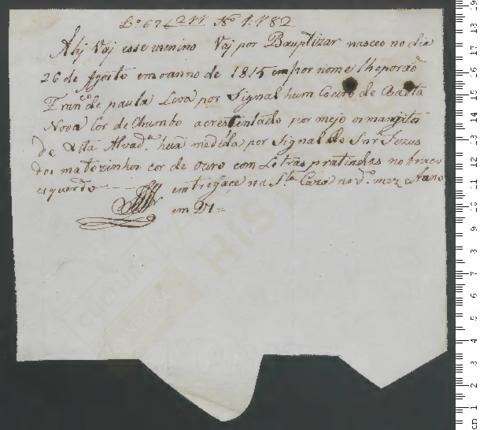 Lº 67 f 211 Nº 1782
Ahj Vaj esse menino Vaj por Bauptizar nasceo no dia
26 de Agosto em o anno de 1815 em por nome lheporão
Franco de paula Leva por Signal hum Coeiro de Baeta
Nova Cor de Chumbo acrescentado por mejo os mangitos
de Xita huá medida por Signal do Snr Jezus
dos matozinhos cor de Ouro com Letras pratiadas no braço
esquerdo entregace na Sta Caza no do mez e Anno
em 27